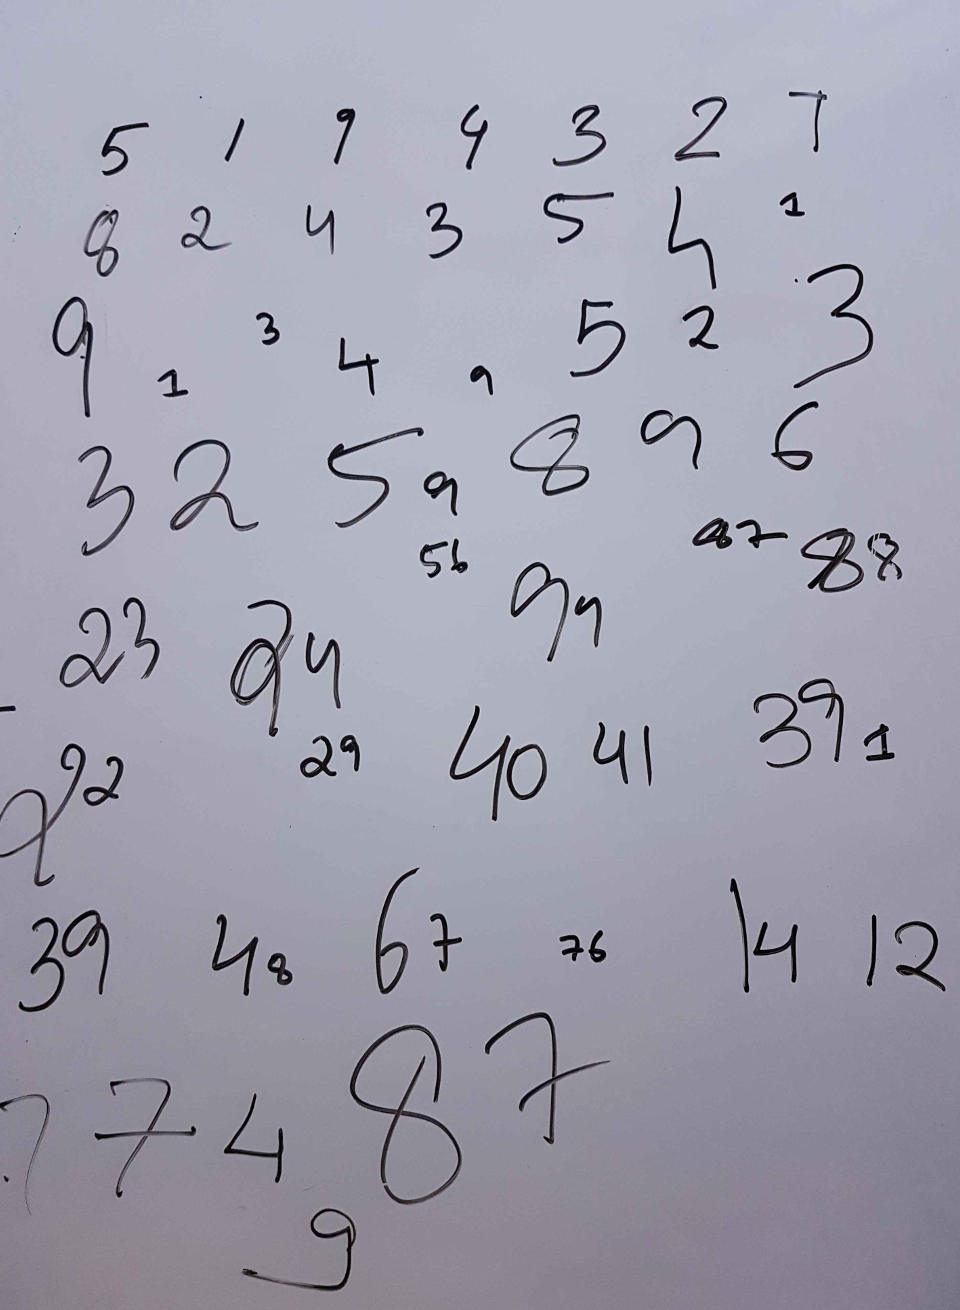 5 1 9 4 3 2 7
8 2 4 3 5 4 1
9 1 3 4 9 5 2 3
3 2 5 9 8 9 6
23 24 56 99 87 88
92 29 40 41 39 1
39 48 67 76 14 12
7 7 4 8 7
9